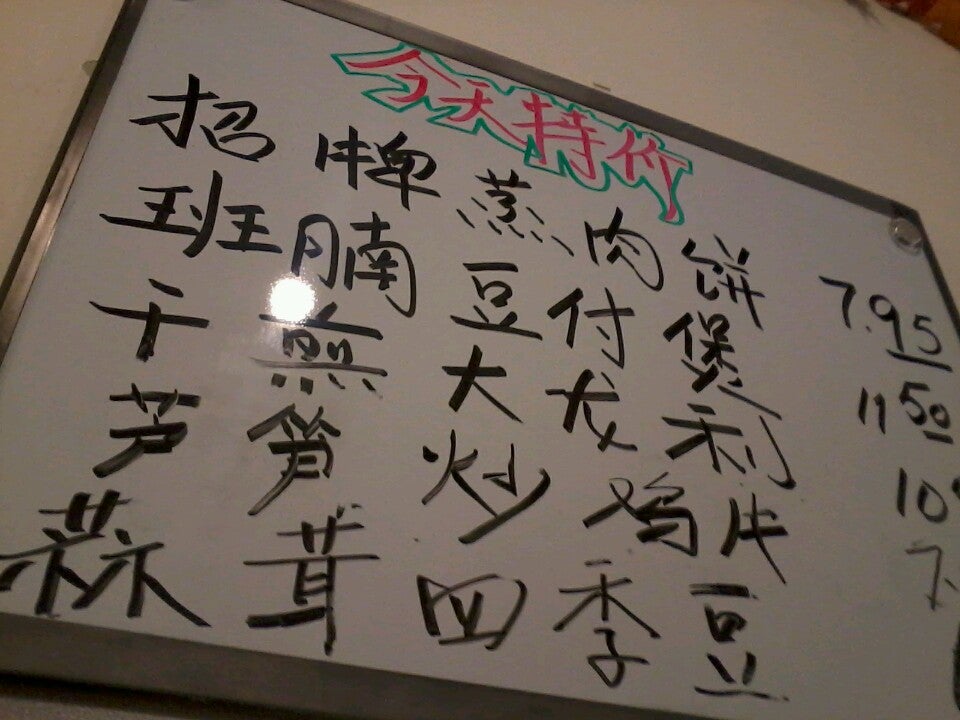 今天特价
招牌蒸肉饼 7.95
班腩豆付煲 11.50
干煎大龙利 10
芦笋炒鸡片 7.
蒜茸四季豆